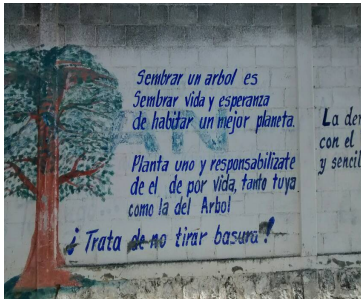 Sembrar un arbol es
Sembrar vida y esperanza
de habitar un mejor planeta.
Planta uno y responsabilizate
de el de por vida, tanto tuya
como la del Arbol
¡Trata de no tirar basura!
La
con el
y